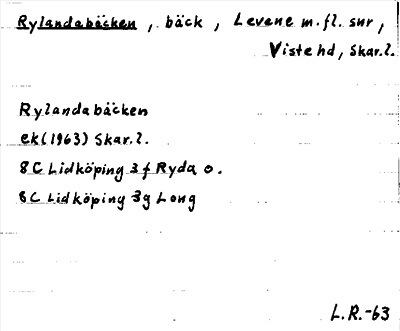 Rylandabäcken, bäck, Levene m.fl. snr,
Viste hd, Skar.l.
Rylandabäcken
ek(1963) Skar.l.
8C Lidköping 3f Ryda o.
8C Lidköping 3g Long
L.R.-63